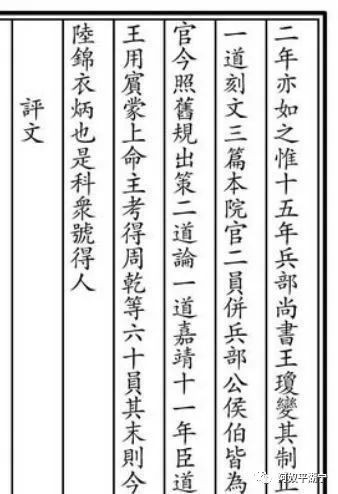 二年亦如之惟十五年兵部尚書王瓊變其制止
一道刻文三篇本院官二員併兵部公侯伯皆為
官今照舊規出策二道論一道嘉靖十一年臣道
王用賓蒙上命主考得周乾等六十員其末則今
陸錦衣炳也是科衆號得人
評文